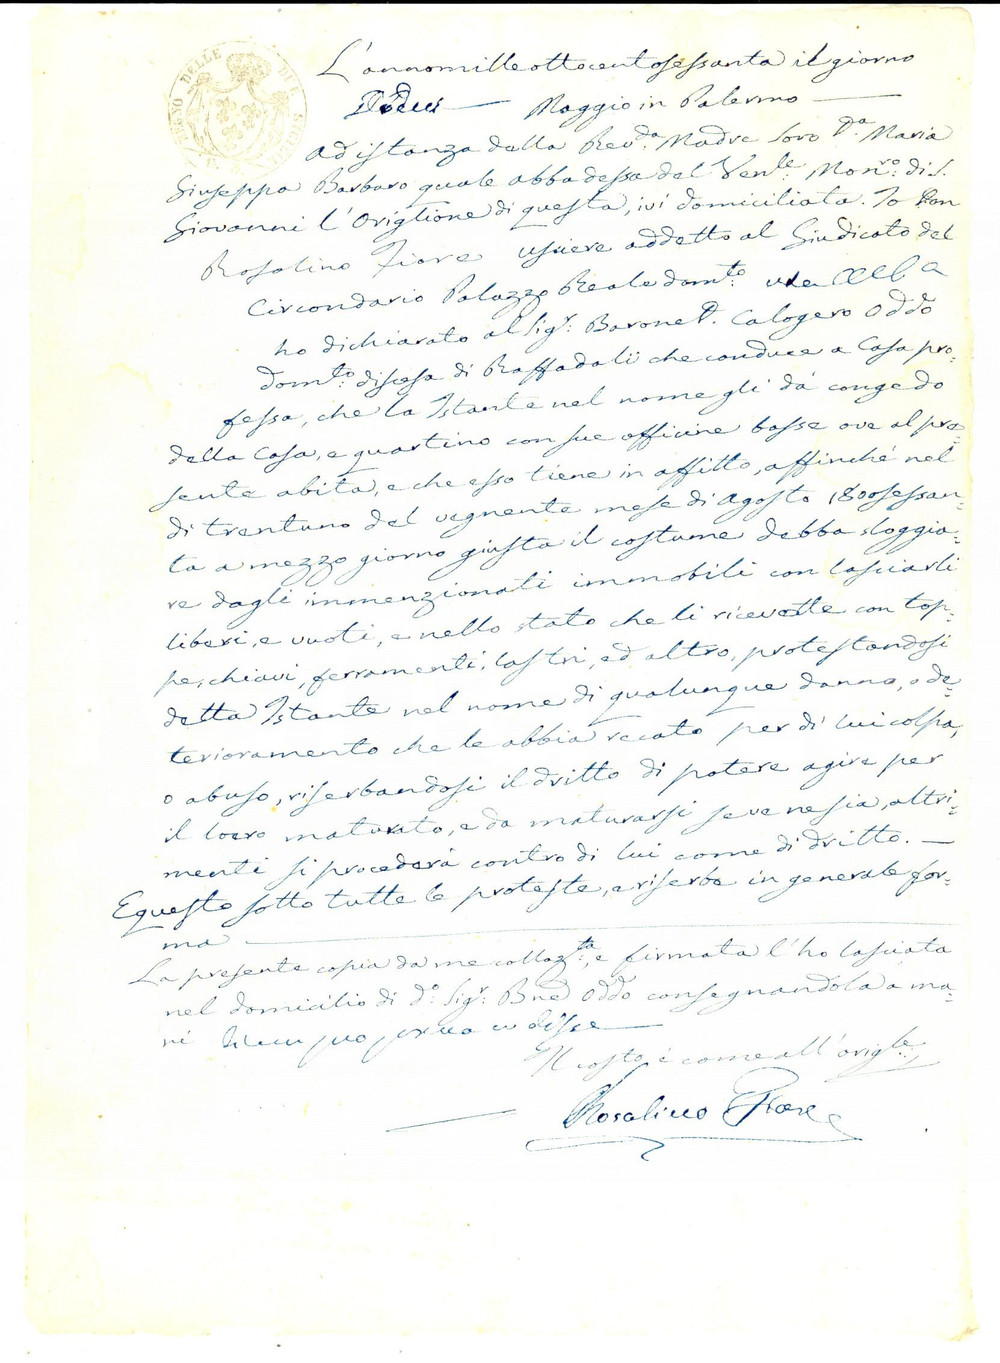 REGNO DELLE DUE SICILIE
L'annomille ottocentosessanta il giorno
Dodeci — Maggio in Palermo —
Ad istanza della Rev.da Madre Soro D.a Maria
Giuseppa Barbaro quale abbadessa del Ven.le Mon.ro di S.
Giovanni l'Origlione di questa, ivi domiciliata. Io
Rosalino Fiore usciere addetto al Giudicato del
Circondario Palazzo Reale dom.to
ho dichiarato al Sig.r Barone D. Calogero Oddo
dom.to discesa di Raffadali che conduce a Casa pro-
fessa, che la Istante nel nome gli dà congedo
della Casa, e quartino con sue officine basse ove al pre-
sente abita, e che esso tiene in affitto, affinchè nel
di trentuno del vegnente mese di Agosto 1800sessan-
ta a mezzo giorno giusta il costume debba sloggia-
re dagli immenzionati immobili con lasciarli
liberi, e vuoti, e nello stato che li ricevette con top-
pe, chiavi, ferramenti, lastri, ed altro, protestandosi
detta Istante nel nome di qualunque danno, o de-
terioramento che le abbia recato per di lui colpa,
o abuso, riserbandosi il dritto di potere agire per
il loero maturato, e da maturarsi se ve ne sia, altri-
menti si procederà contro di lui come di dritto. —
E questo sotto tutte le proteste, e riserbe in generale for-
ma —
La presente copia da me collaz.ta, e firmata l'ho lasciata
nel domicilio di d.o Sig.r Bne D. Oddo consegnandola a ma-
ni di un suo disse —
Il costo è come all'orig.le
Rosalino Fiore